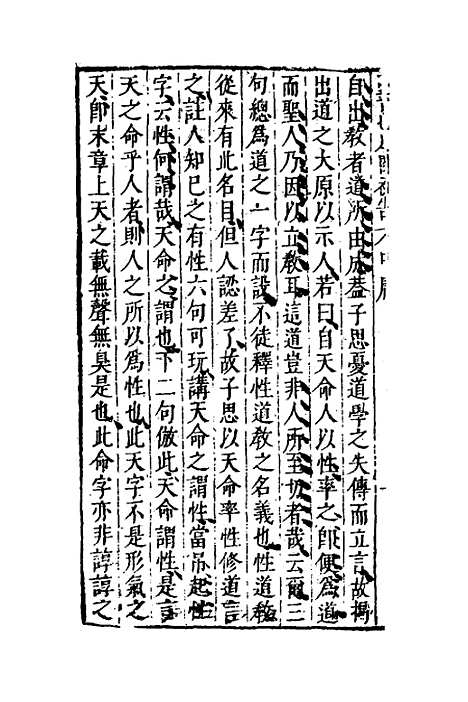 自出教者道所由成蓋子思憂道學之失傳而立言故揭
出道之大原以示人若曰自天命人以性率之卽便為道
而聖人乃因以立教耳這道豈非人所至切者哉云爾三
句總為道之一字而設不徒釋性道教之名義也性道教
從來有此名目但人認差了故子思以天命率性修道言
之註人知已之有性六句可玩講天命之謂性當吊起性
字云性何謂哉天命之謂也下二句倣此天命謂性是言
天之命乎人者則人之所以為性也此天字不是形氣之
天卽末章上天之載無聲無臭是也此命字亦非諄諄之